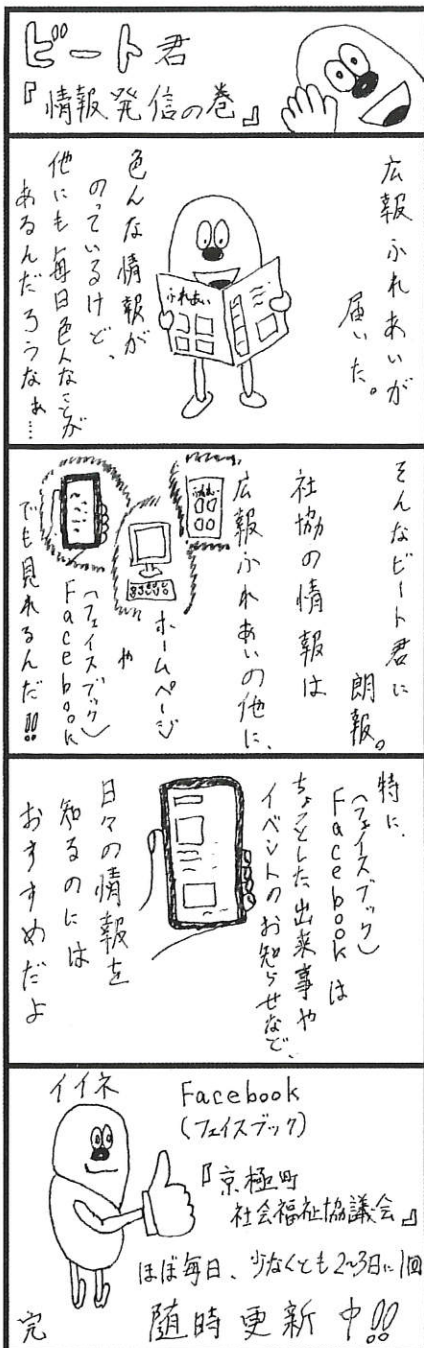 ビート君
『情報発信の巻』
広報ふれあいが
届いた。
ふれあい
色んな情報が
のっているけど、
他にも毎日色んなことが
あるんだろうなぁ…
そんなビート君に
朗報。
社協の情報は
広報ふれあいの他に、
ホームページ
や
(フェイスブック)
Facebook
でも見れるんだ!!
特に、
(フェイスブック)
Facebookは
ちょっとした出来事や
イベントのお知らせなど、
日々の情報を
知るのには
おすすめだよ
イイネ
Facebook
(フェイスブック)
『京極町
社会福祉協議会』
ほぼ毎日、少なくとも2~3日に1回
随時更新中!!
完